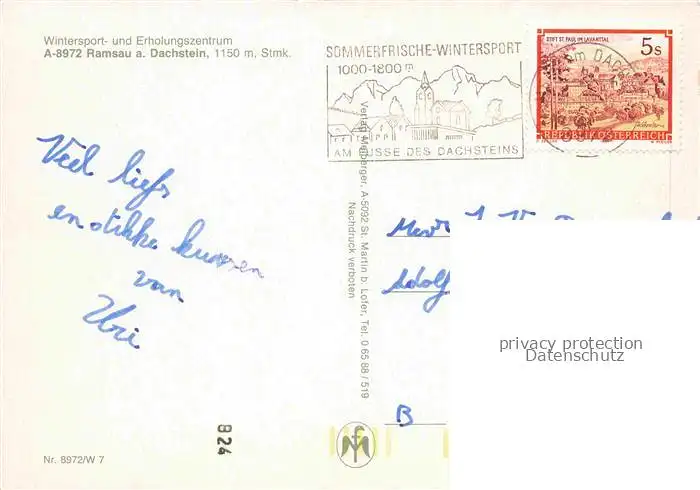 Wintersport- und Erholungszentrum
A-8972 Ramsau a. Dachstein, 1150 m, Stmk.
SOMMERFRISCHE-WINTERSPORT
1000-1800 m
AM FUSSE DES DACHSTEINS
STIFT ST. PAUL IM LAVANTTAL
5 S
REPUBLIK ÖSTERREICH
am DACH
Viel liefs
en stikke kussen
van
Uri
Verlag Meiberger, A-5092 St. Martin b. Lofer, Tel. 0 65 88 / 519
Nachdruck verboten
Adolf
privacy protection
Datenschutz
B
824
Nr. 8972/W 7